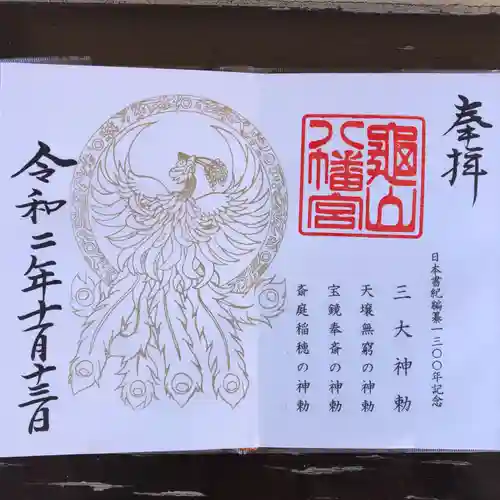 奉拝
亀山
八幡宮
日本書紀編纂一三〇〇年記念
三大神勅
天壌無窮の神勅
宝鏡奉斎の神勅
斎庭稲穂の神勅
令和二年十一月十三日